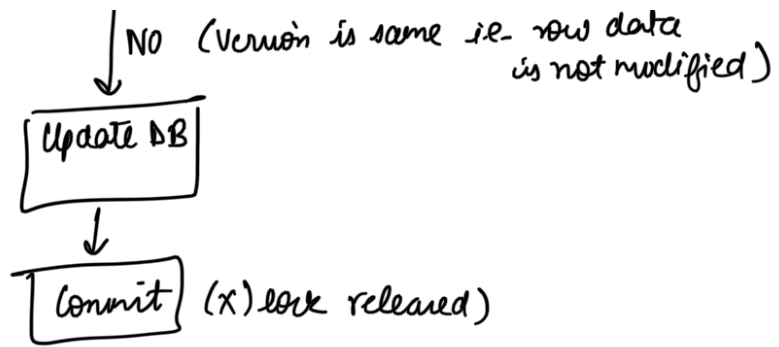 NO (Version is same i.e- row data
is not modified)
Update DB
Commit (X) lock released)